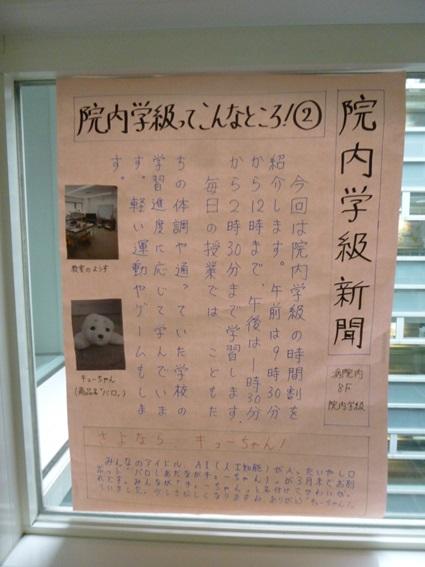 院内学級新聞
病院内
8F
院内学級
院内学級ってこんなところ!②
今回は院内学級の時間割を
紹介します。午前は9時30分
から12時まで、午後は1時30分
から2時30分まで学習します。
毎日の授業では、こどもた
ちの体調や通っていた学校の
学習進度に応じて学んでいま
す。軽い運動やゲームもしま
す。
教室のようす
キューちゃん
(商品名"パロ")
さよなら キューちゃん!
みんなのアイドル、AI(人工知能)が入ったいやしロ
ボット"パロ(あだながキューちゃん)"が3月末でお別
れです。みんなが"キューちゃん"と名付けてかわいが
っていました。少しさびしくなりますね。ありがとう"キューちゃん"。